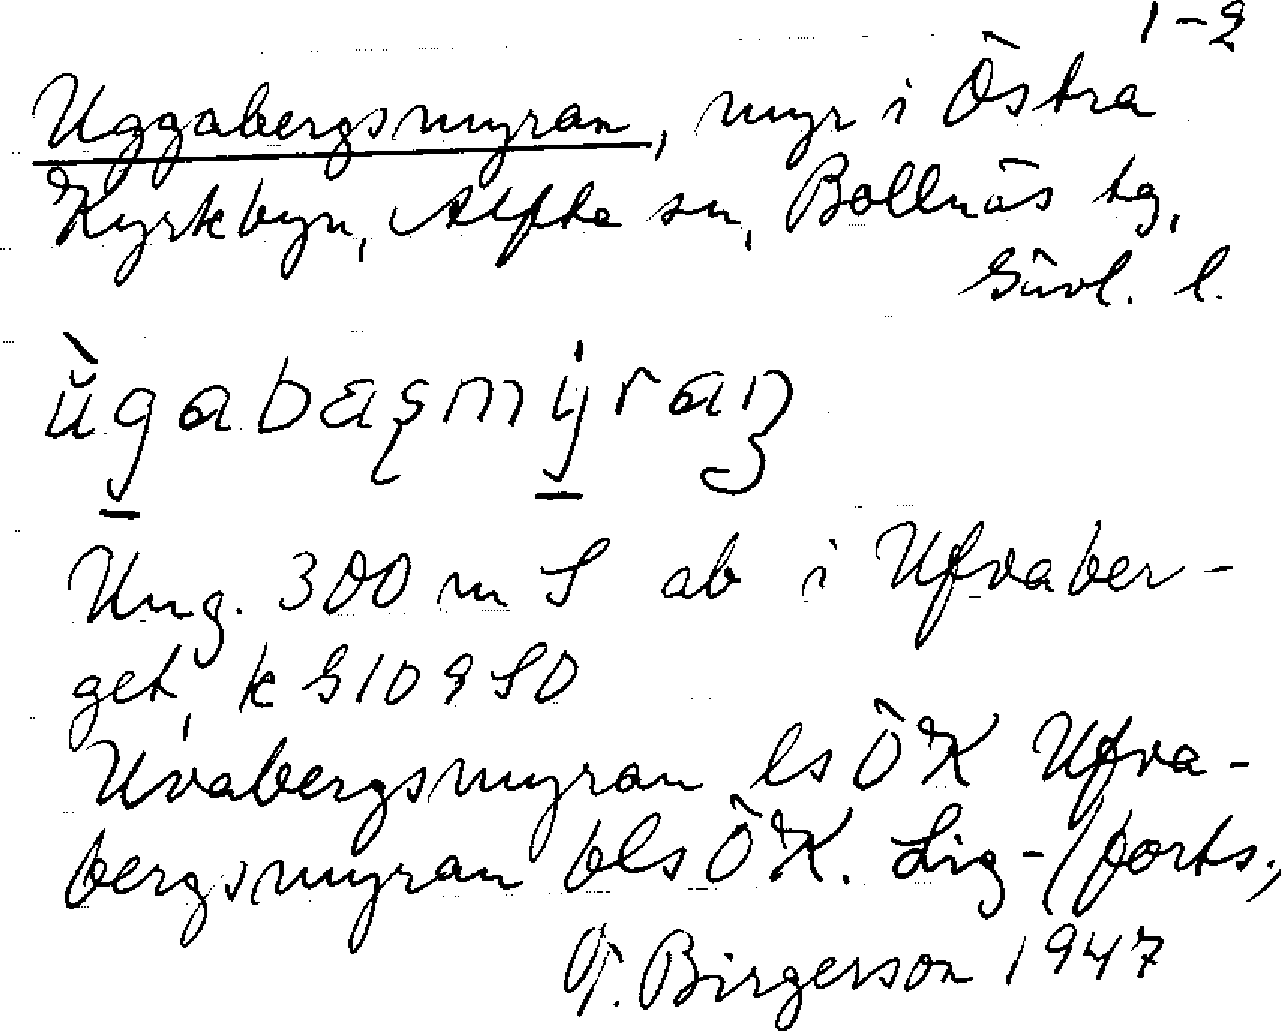 1-2
Uggabergsmyran, myr i Östra
Kyrkbyn, Alfta sn, Bollnäs tg,
Gävl. l.
ùgabaşmýraɲ
Ung. 300 m S ab i Ufvaber-
get, k G1092SO
Uvabergsmyran ls ÖK Ufva-
bergsmyran bls ÖK. Lig- (forts.,
G. Birgerson 1947